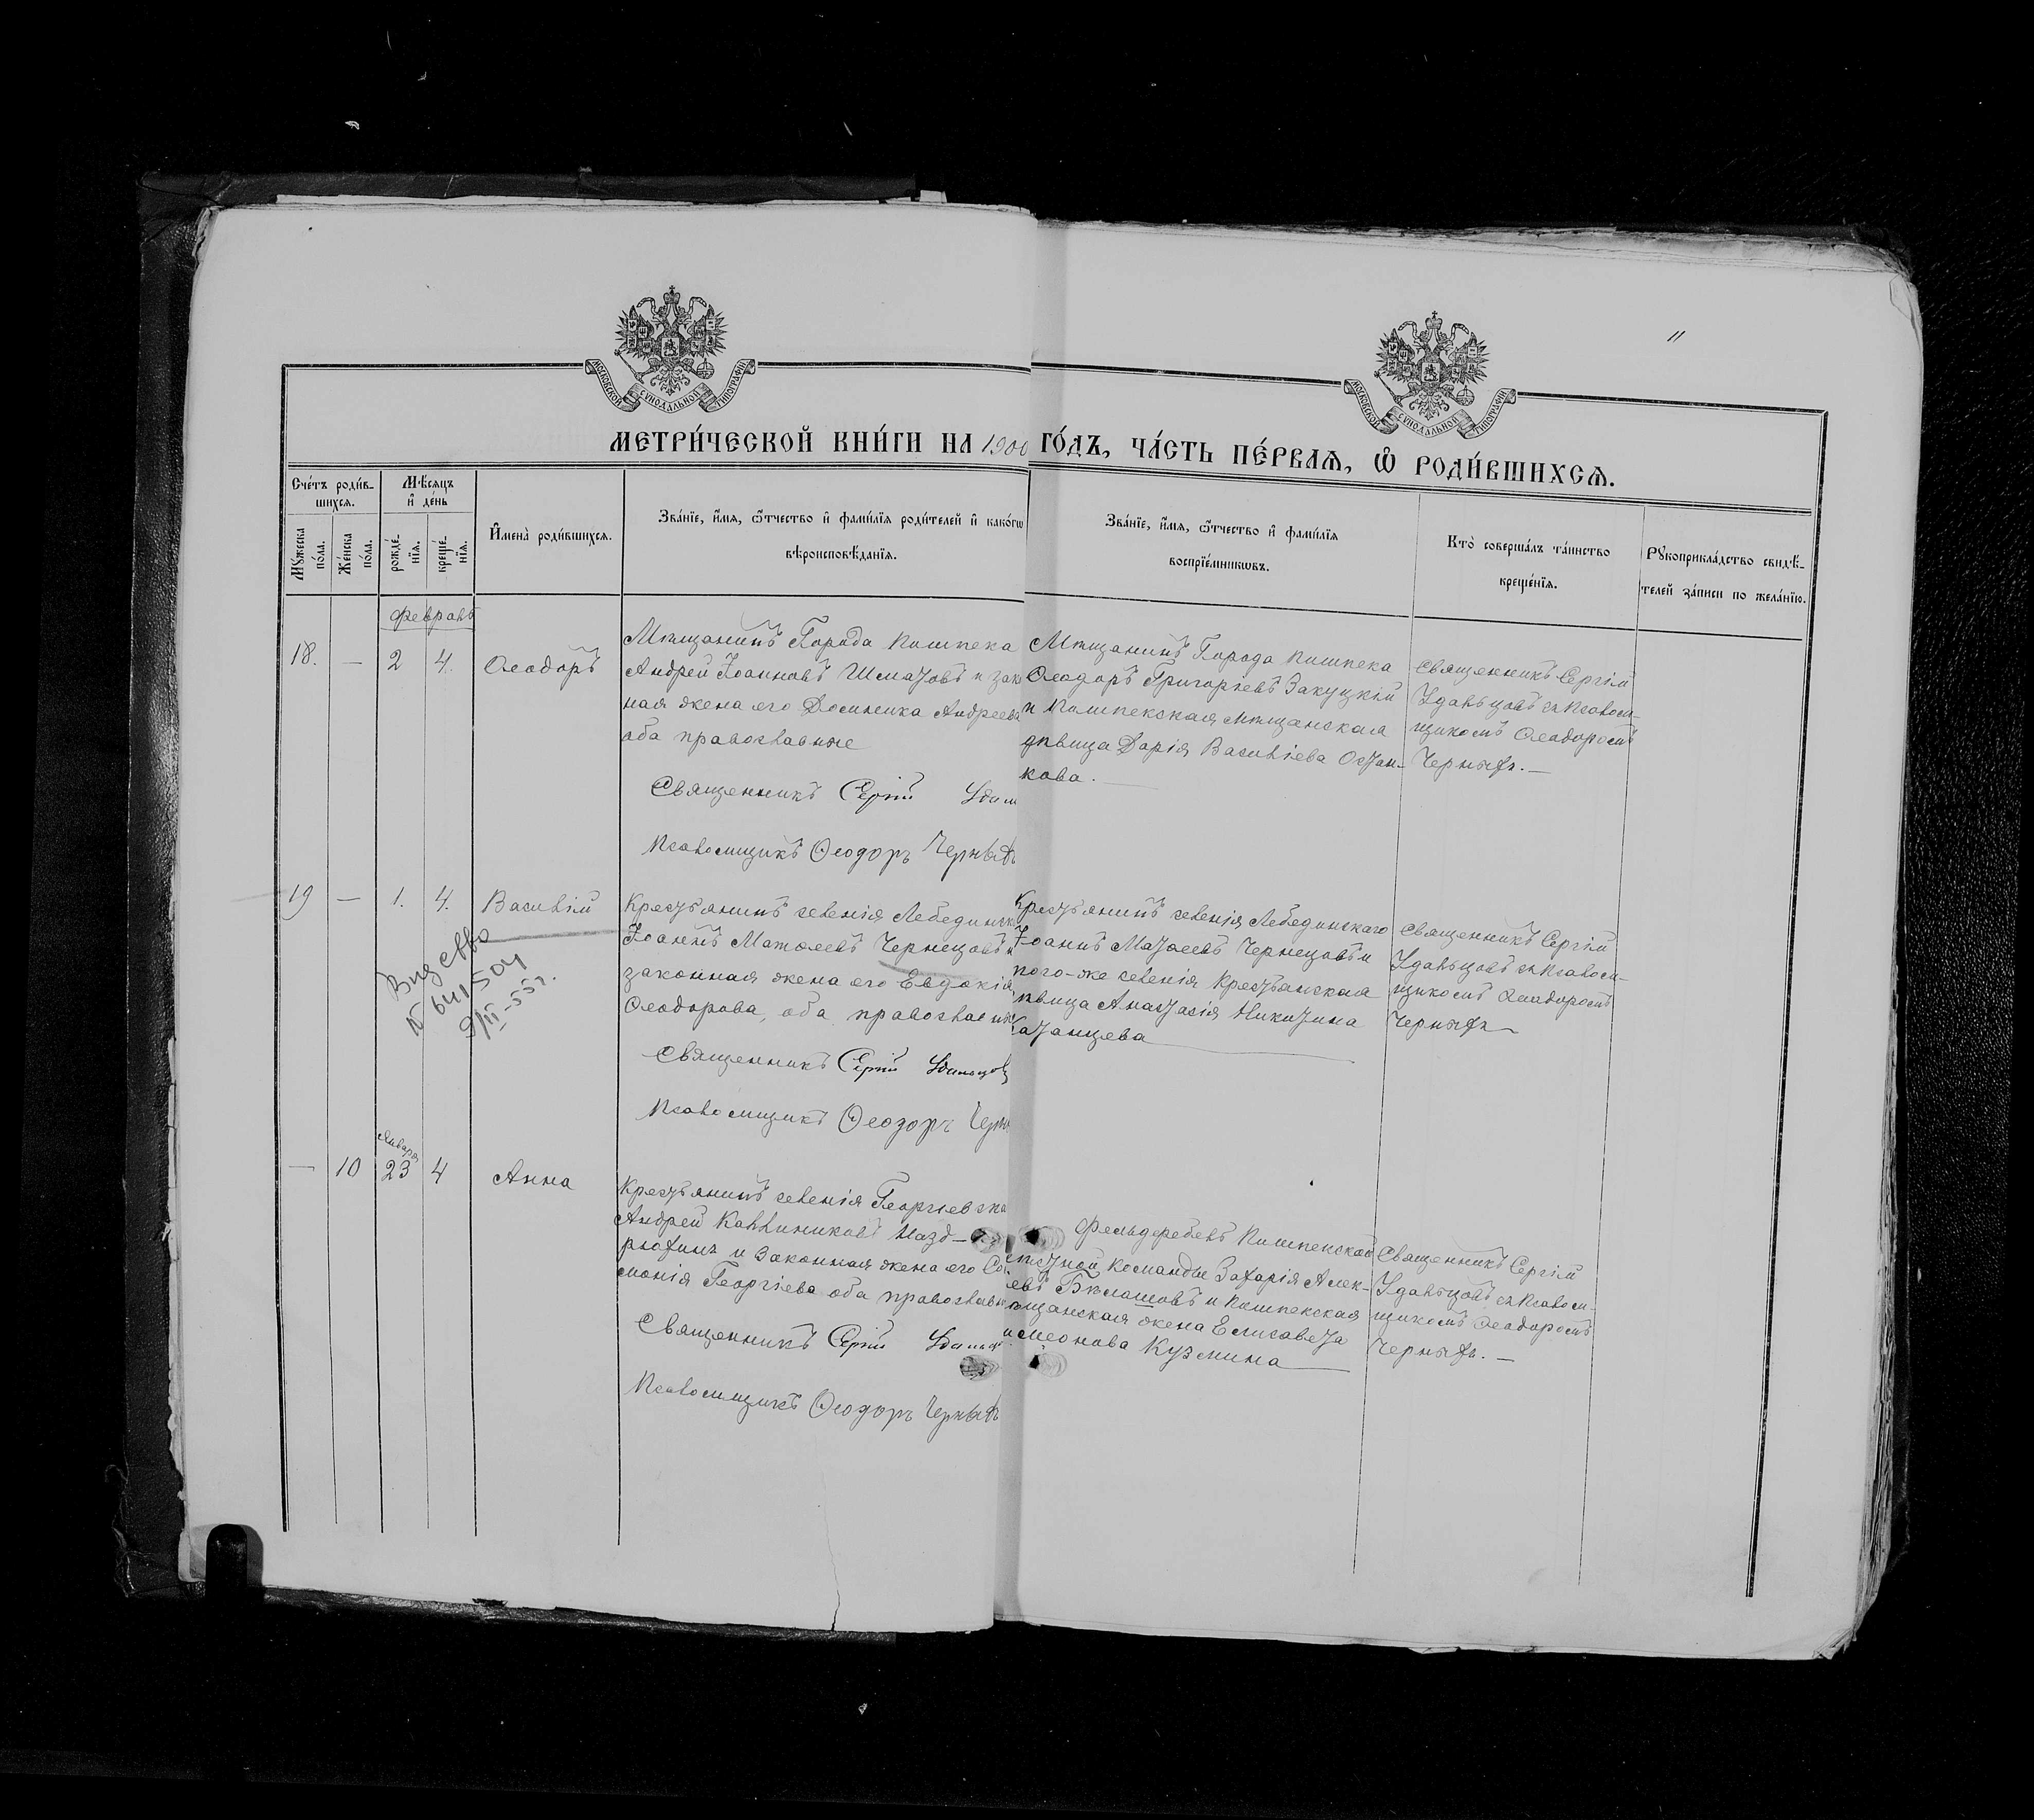 11
МОСКОВСКОЙ СУНОДАЛЬНОЙ ТИПОГРАФІИ
МОСКОВСКОЙ СУНОДАЛЬНОЙ ТИПОГРАФІИ
МЕТРИ́ЧЕСКОЙ КНИ́ГИ НА 1900 ГО́ДЪ, ЧА́СТЬ ПЕ́РВАѦ, Ѡ҆ РОДИ́ВШИХСѦ.
Сче́тъ роди́в-
шихсѧ.
Мꙋ́жеска по́ла.
Же́нска по́ла.
Мѣ́сѧцъ
и҆ де́нь
рожде́-нїѧ.
креще́-нїѧ.
И҆мена̀ роди́вшихсѧ.
Зва́нїе, и҆́мѧ, ѻ҆́тчество и҆ фами́лїѧ роди́телей и҆ како́гѡ
вѣроисповѣ́данїѧ.
Зва́нїе, и҆́мѧ, ѻ҆́тчество и҆ фами́лїѧ
воспрїе́мникѡвъ.
Кто̀ соверша́лъ та́инство
креще́нїѧ.
Рꙋкоприкла́дство свидѣ́-
телей за́писи по жела́нїю.
Февраль
18. — 2 4. Ѳеодоръ
Мѣщанинъ Города Пишпека
Андрей Іоанновъ Шматовъ и зак
ная жена его Домника Андреева
оба православные
Священникъ Сергій
Псаломщикъ Ѳеодоръ Черныхъ
Мѣщанинъ Города Пишпека
Ѳеодоръ Григоріевъ Закуцкій
и Пишпекская мѣщанская
дѣвица Дарія Василіева Остан-
кова. —
Священникъ Сергій
Удальцовъ съ псаломщ-
щикомъ Ѳеодоромъ
Черныхъ. —
19 — 1. 4. Василій
Крестьянинъ селенія Лебединска
Іоаннъ Матѳеевъ Чернецовъ и
законная жена его Евдокія
Ѳеодорова, оба православные
Священникъ Сергій Удальцовъ
Псаломщикъ Ѳеодоръ Черн
Крестьянинъ селенія Лебединскаго
Іоаннъ Матѳеевъ Чернецовъ и
того-же селенія Крестьянская
дѣвица Анастасія Никитина
Казанцева
Священникъ Сергій
Удальцовъ съ псалом-
щикомъ Ѳеодоромъ
Черныхъ
№ 641504
9/III-55г.
Января
— 10 23 4 Анна
Крестьянинъ селенія Георгіевска
Андрей Каллиниковъ Назд-
рюхинъ и законная жена его Со
монія Георгіева оба православны
Священникъ Сергій Удальц
Псаломщикъ Ѳеодоръ Черныхъ
Фельдфебель Пишпекской
мѣстной Команды Захарія Алек-
евъ Бѣлашовъ и Пишпекская
мѣщанская жена Елисавета
имеонова Кузмина
Священникъ Сергій
Удальцовъ съ псалом-
щикомъ Ѳеодоромъ
Черныхъ. —